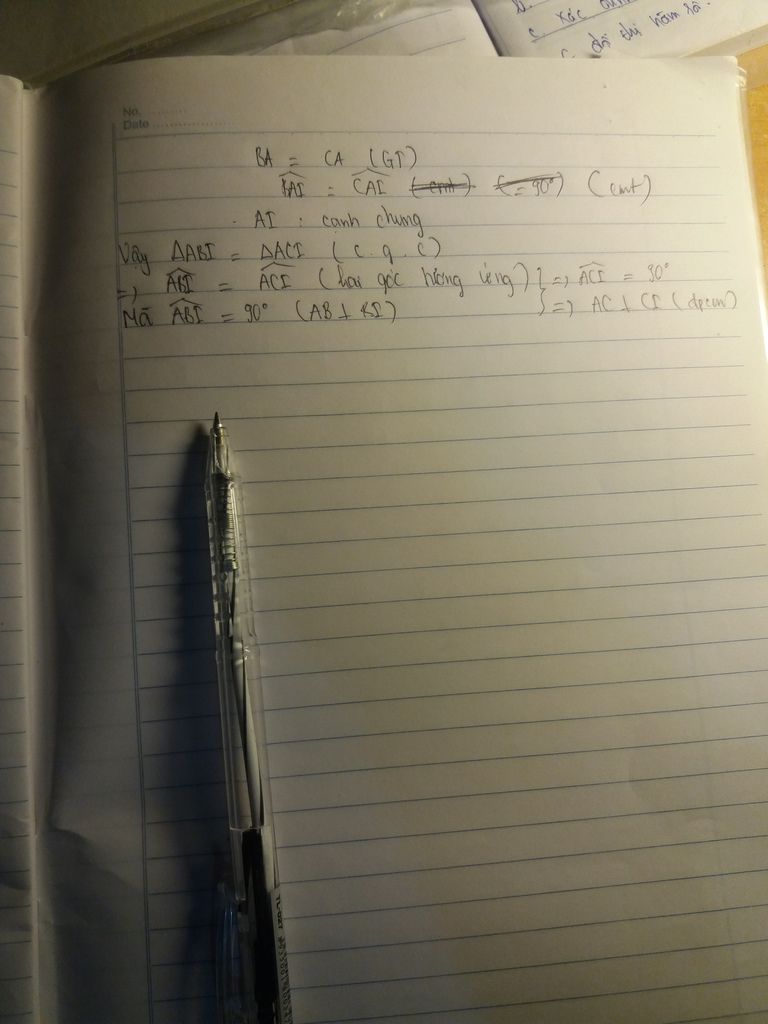 c. xác định
c. đồ thị hàm số.
No. ..........
Date ....................
BA = CA (GT)
BAI = CAI (cmt) (= 90°) (cmt)
AI : cạnh chung
Vậy ΔABI = ΔACI (c.g.c)
=> ABI = ACI (hai góc tương ứng) } => ACI = 90°
Mà ABI = 90° (AB ⊥ BI) } => AC ⊥ CI (đpcm)